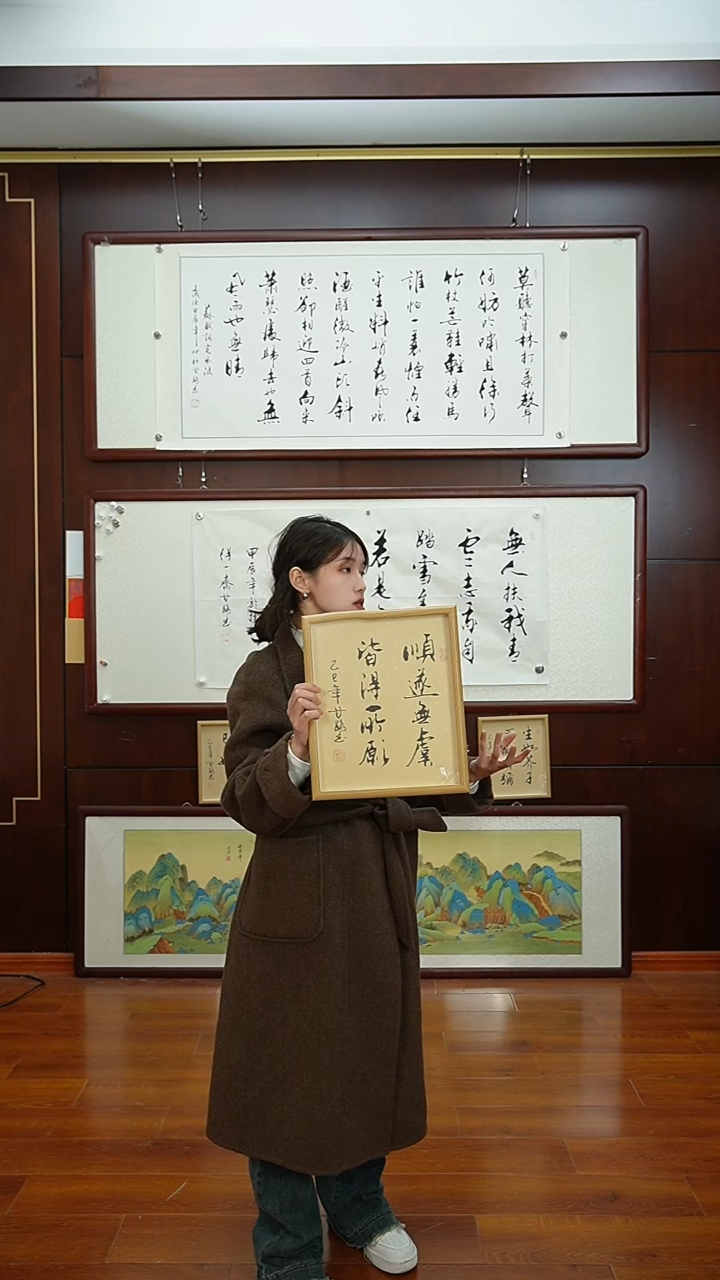 莫聽穿林打葉聲
何妨吟嘯且徐行
竹杖芒鞋輕勝馬
誰怕一蓑煙雨任
平生料峭春風吹
酒醒微冷山頭斜
照卻相迎回首向來
蕭瑟處歸去也無
風雨也無晴
蘇軾詞定風波
無人扶我青
雲志我自
踏雪至
若是
甲辰年
順遂無虞
皆得所願
乙巳年